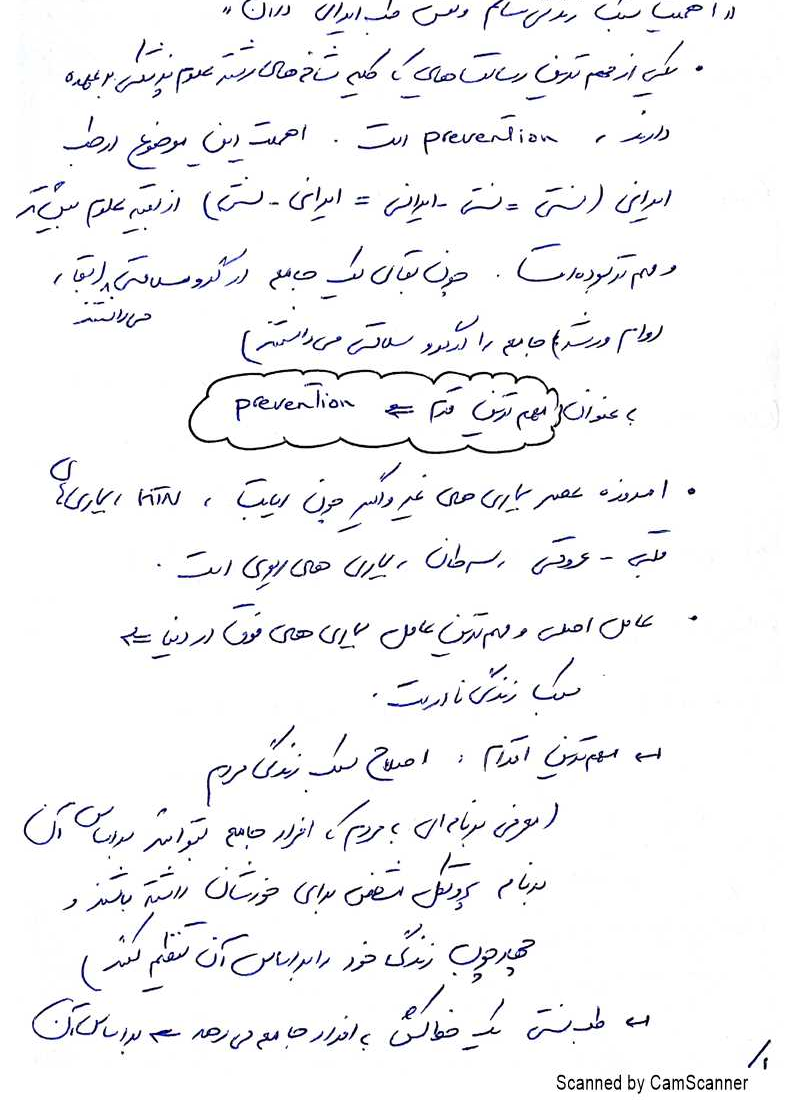 «اهمیت سبک زندگی سالم و نقش طب ایرانی در آن»
• یکی از مهم ترین رسالت هایی که کلیه شاخه های رشته علوم پزشکی بر عهده
دارند ، prevention است . اهمیت این موضوع در طب
ایرانی (سنتی = سنتی - ایرانی = ایرانی - سنتی) از بقیه علوم بیشتر
و مهم تر بوده است . چون بقای یک جامعه در گرو سلامتی (بقا ،
می دانستند
دوام و رشد) جامعه را در گرو سلامتی می دانستند)
به عنوان مهم ترین قدم ⇐ prevention
• امروزه عصر بیماری های غیر واگیر چون دیابت ، HTN ، بیماری های
قلبی - عروقی ، سرطان ، بیماری های ریوی است .
• عامل اصلی و مهم ترین عامل بیماری های فوق در دنیا ⇐
سبک زندگی نادرست .
← مهم ترین اقدام : اصلاح سبک زندگی مردم
(معرفی برنامه ای به مردم که افراد جامعه بتوانند بر اساس آن
برنامه پروتکل مشخص برای خودشان داشته باشند و
چهارچوب زندگی خود را بر اساس آن تنظیم کنند)
← طب سنتی یک خط کش به افراد جامعه می دهد ⇐ بر اساس آن
۱/
Scanned by CamScanner